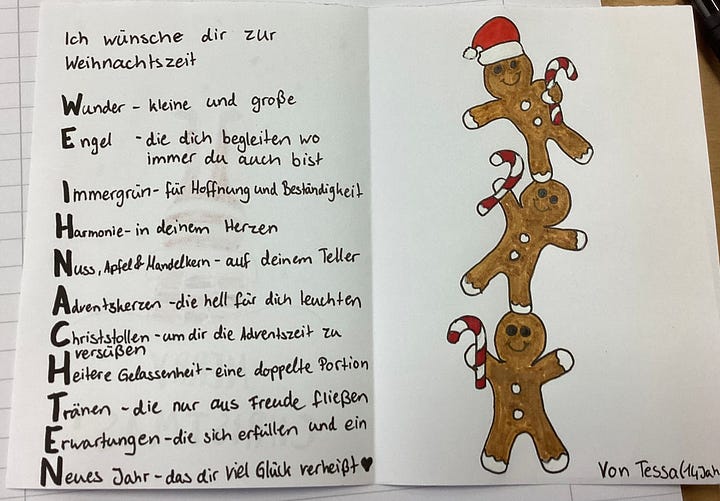 Ich wünsche dir zur
Weihnachtszeit
Wunder - kleine und große
Engel - die dich begleiten wo
immer du auch bist
Immergrün - für Hoffnung und Beständigkeit
Harmonie - in deinem Herzen
Nuss, Apfel & Mandelkern - auf deinem Teller
Adventskerzen - die hell für dich leuchten
Christstollen - um dir die Adventszeit zu
versüßen
Heitere Gelassenheit - eine doppelte Portion
Tränen - die nur aus Freude fließen
Erwartungen - die sich erfüllen und ein
Neues Jahr - das dir viel Glück verheißt ♥
Von Tessa (14 Jah